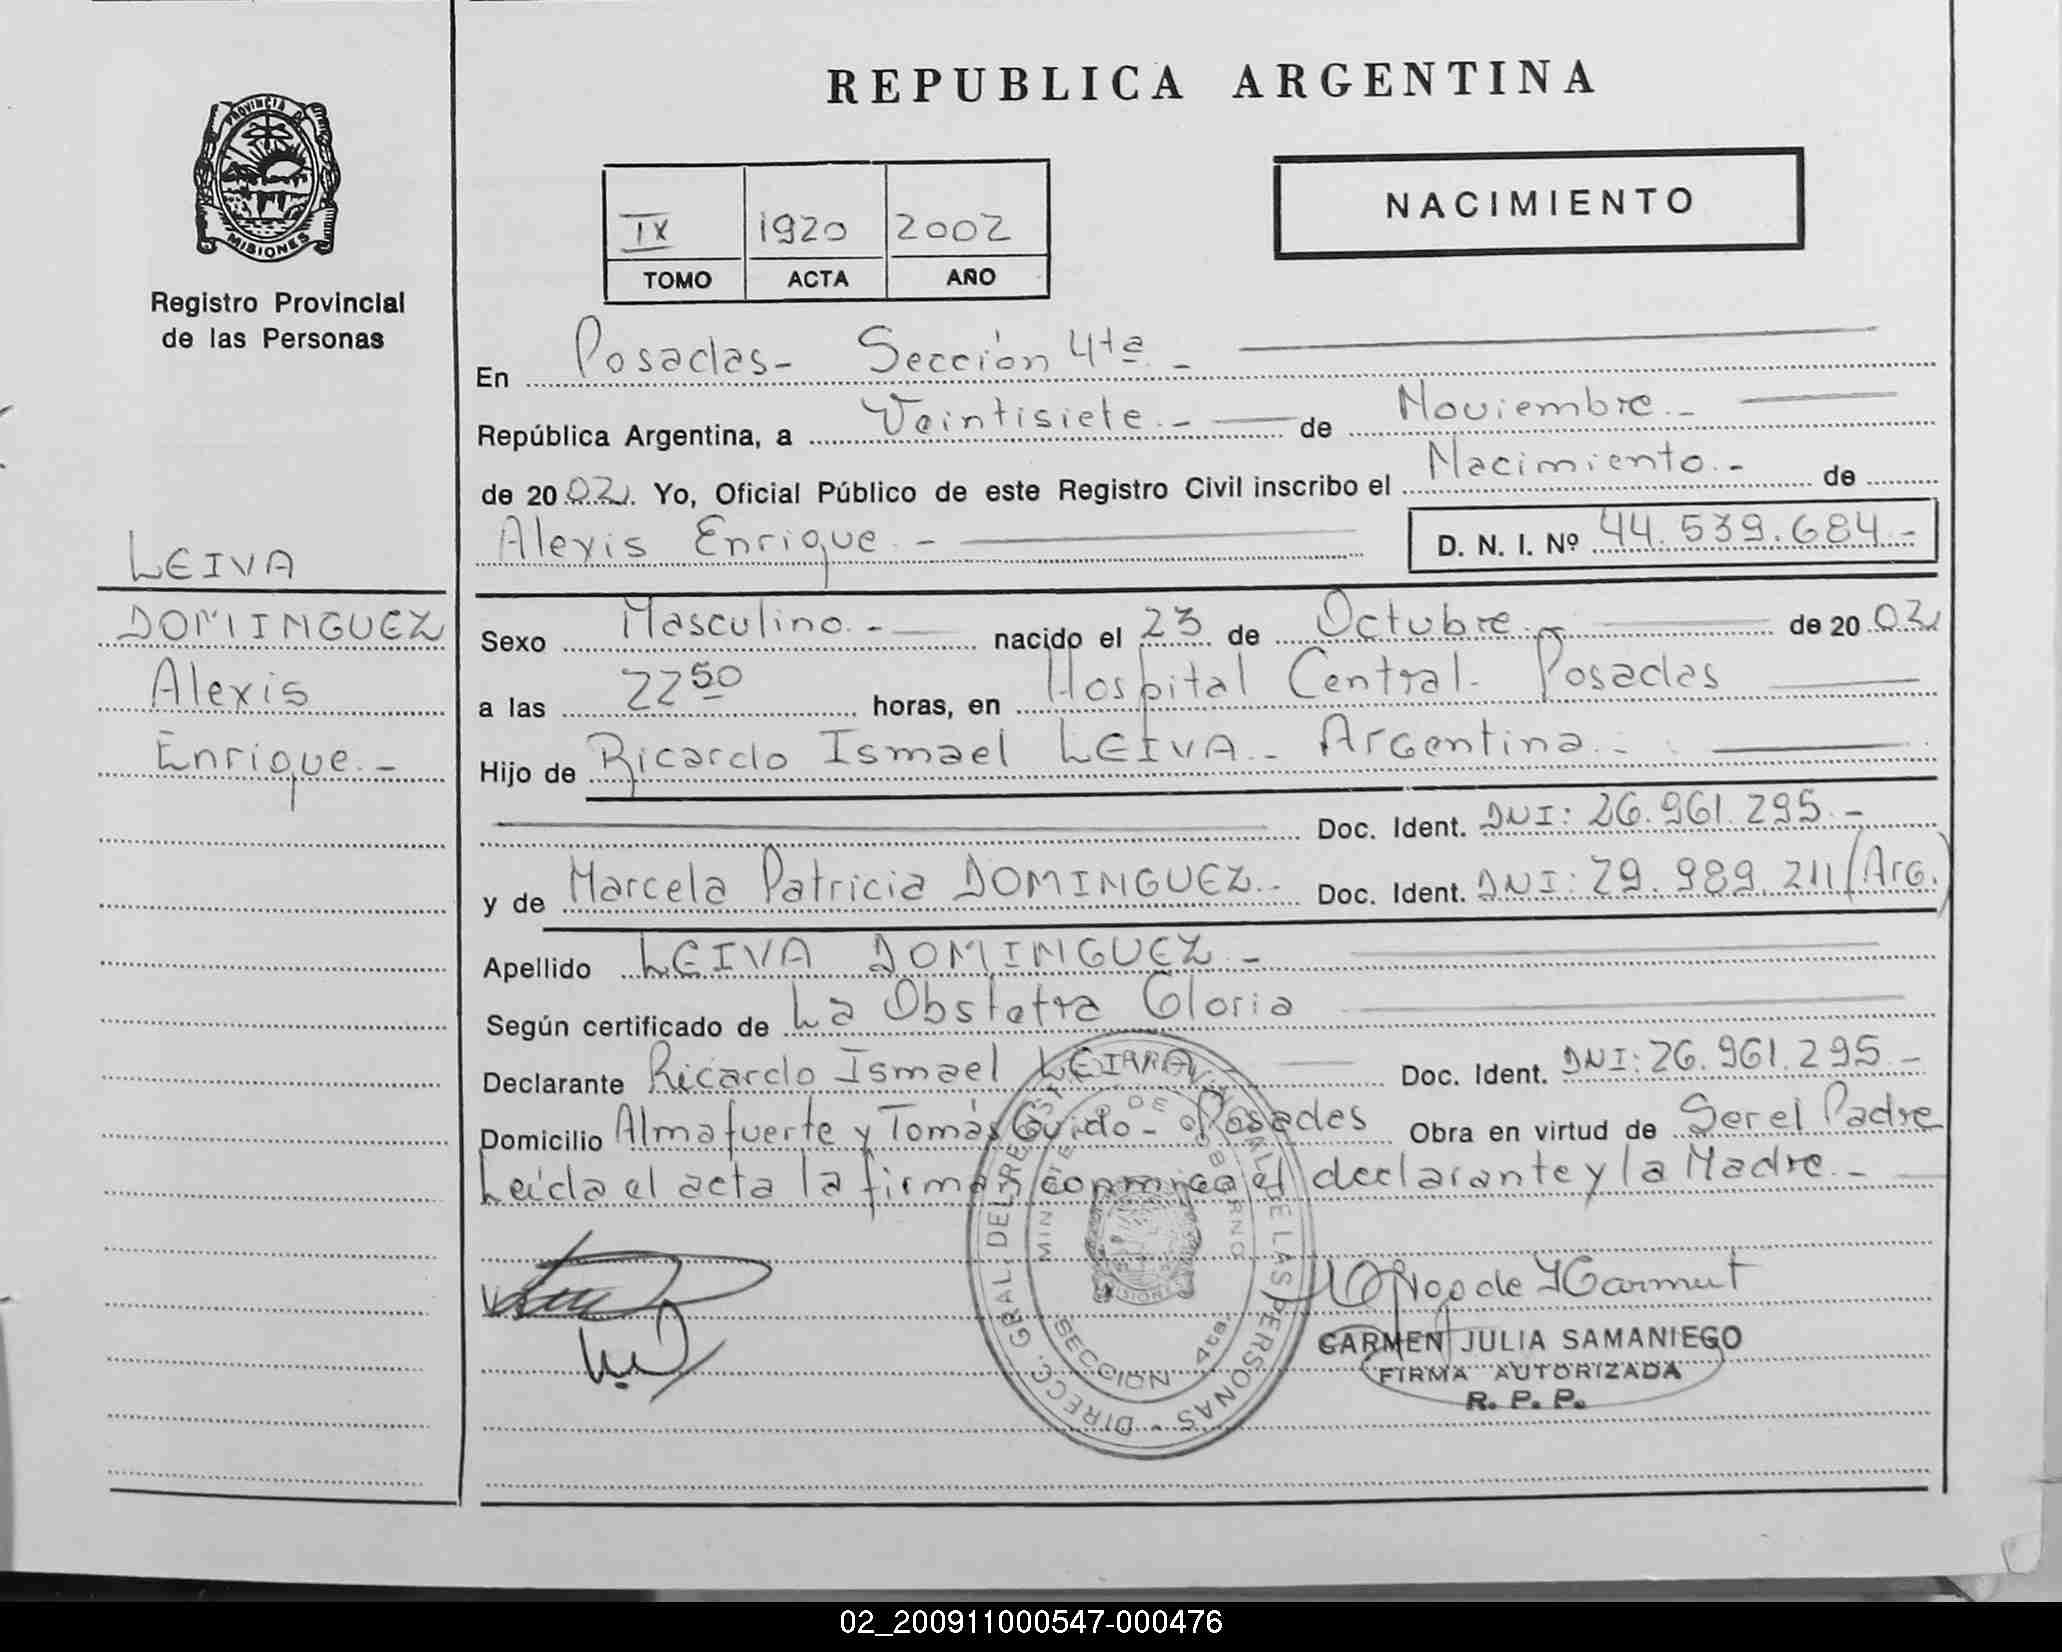 REPUBLICA ARGENTINA
PROVINCIA DE
MISIONES
Registro Provincial
de las Personas
NACIMIENTO
IX 1920 2002
TOMO ACTA AÑO
En Posadas- Sección 4ta.-
República Argentina, a Veintisiete.- de Noviembre.-
de 2002. Yo, Oficial Público de este Registro Civil inscribo el Nacimiento.- de
Alexis Enrique.- D. N. I. Nº 44.539.684.-
LEIVA
DOMINGUEZ
Alexis
Enrique.-
Sexo Masculino.- nacido el 23 de Octubre.- de 2002
a las 22 50 horas, en Hospital Central- Posadas
Hijo de Ricardo Ismael LEIVA.- Argentina.-
Doc. Ident. DNI: 26.961.295.-
y de Marcela Patricia DOMINGUEZ.- Doc. Ident. DNI: 29.989.211 (Arg.)
Apellido LEIVA DOMINGUEZ.-
Según certificado de La Obstetra Gloria
Declarante Ricardo Ismael Doc. Ident. DNI: 26.961.295.-
Domicilio Almafuerte y Tomás Guido- Posadas Obra en virtud de Ser el Padre
Leída el acta la firman conmigo el declarante y la Madre.-
DIRECC. GRAL. DEL REGISTRO DE LAS PERSONAS
MINISTERIO DE GOBIERNO
MISIONES
SECCION 4ta.
CARMEN JULIA SAMANIEGO
FIRMA AUTORIZADA
R. P. P.
02_200911000547-000476